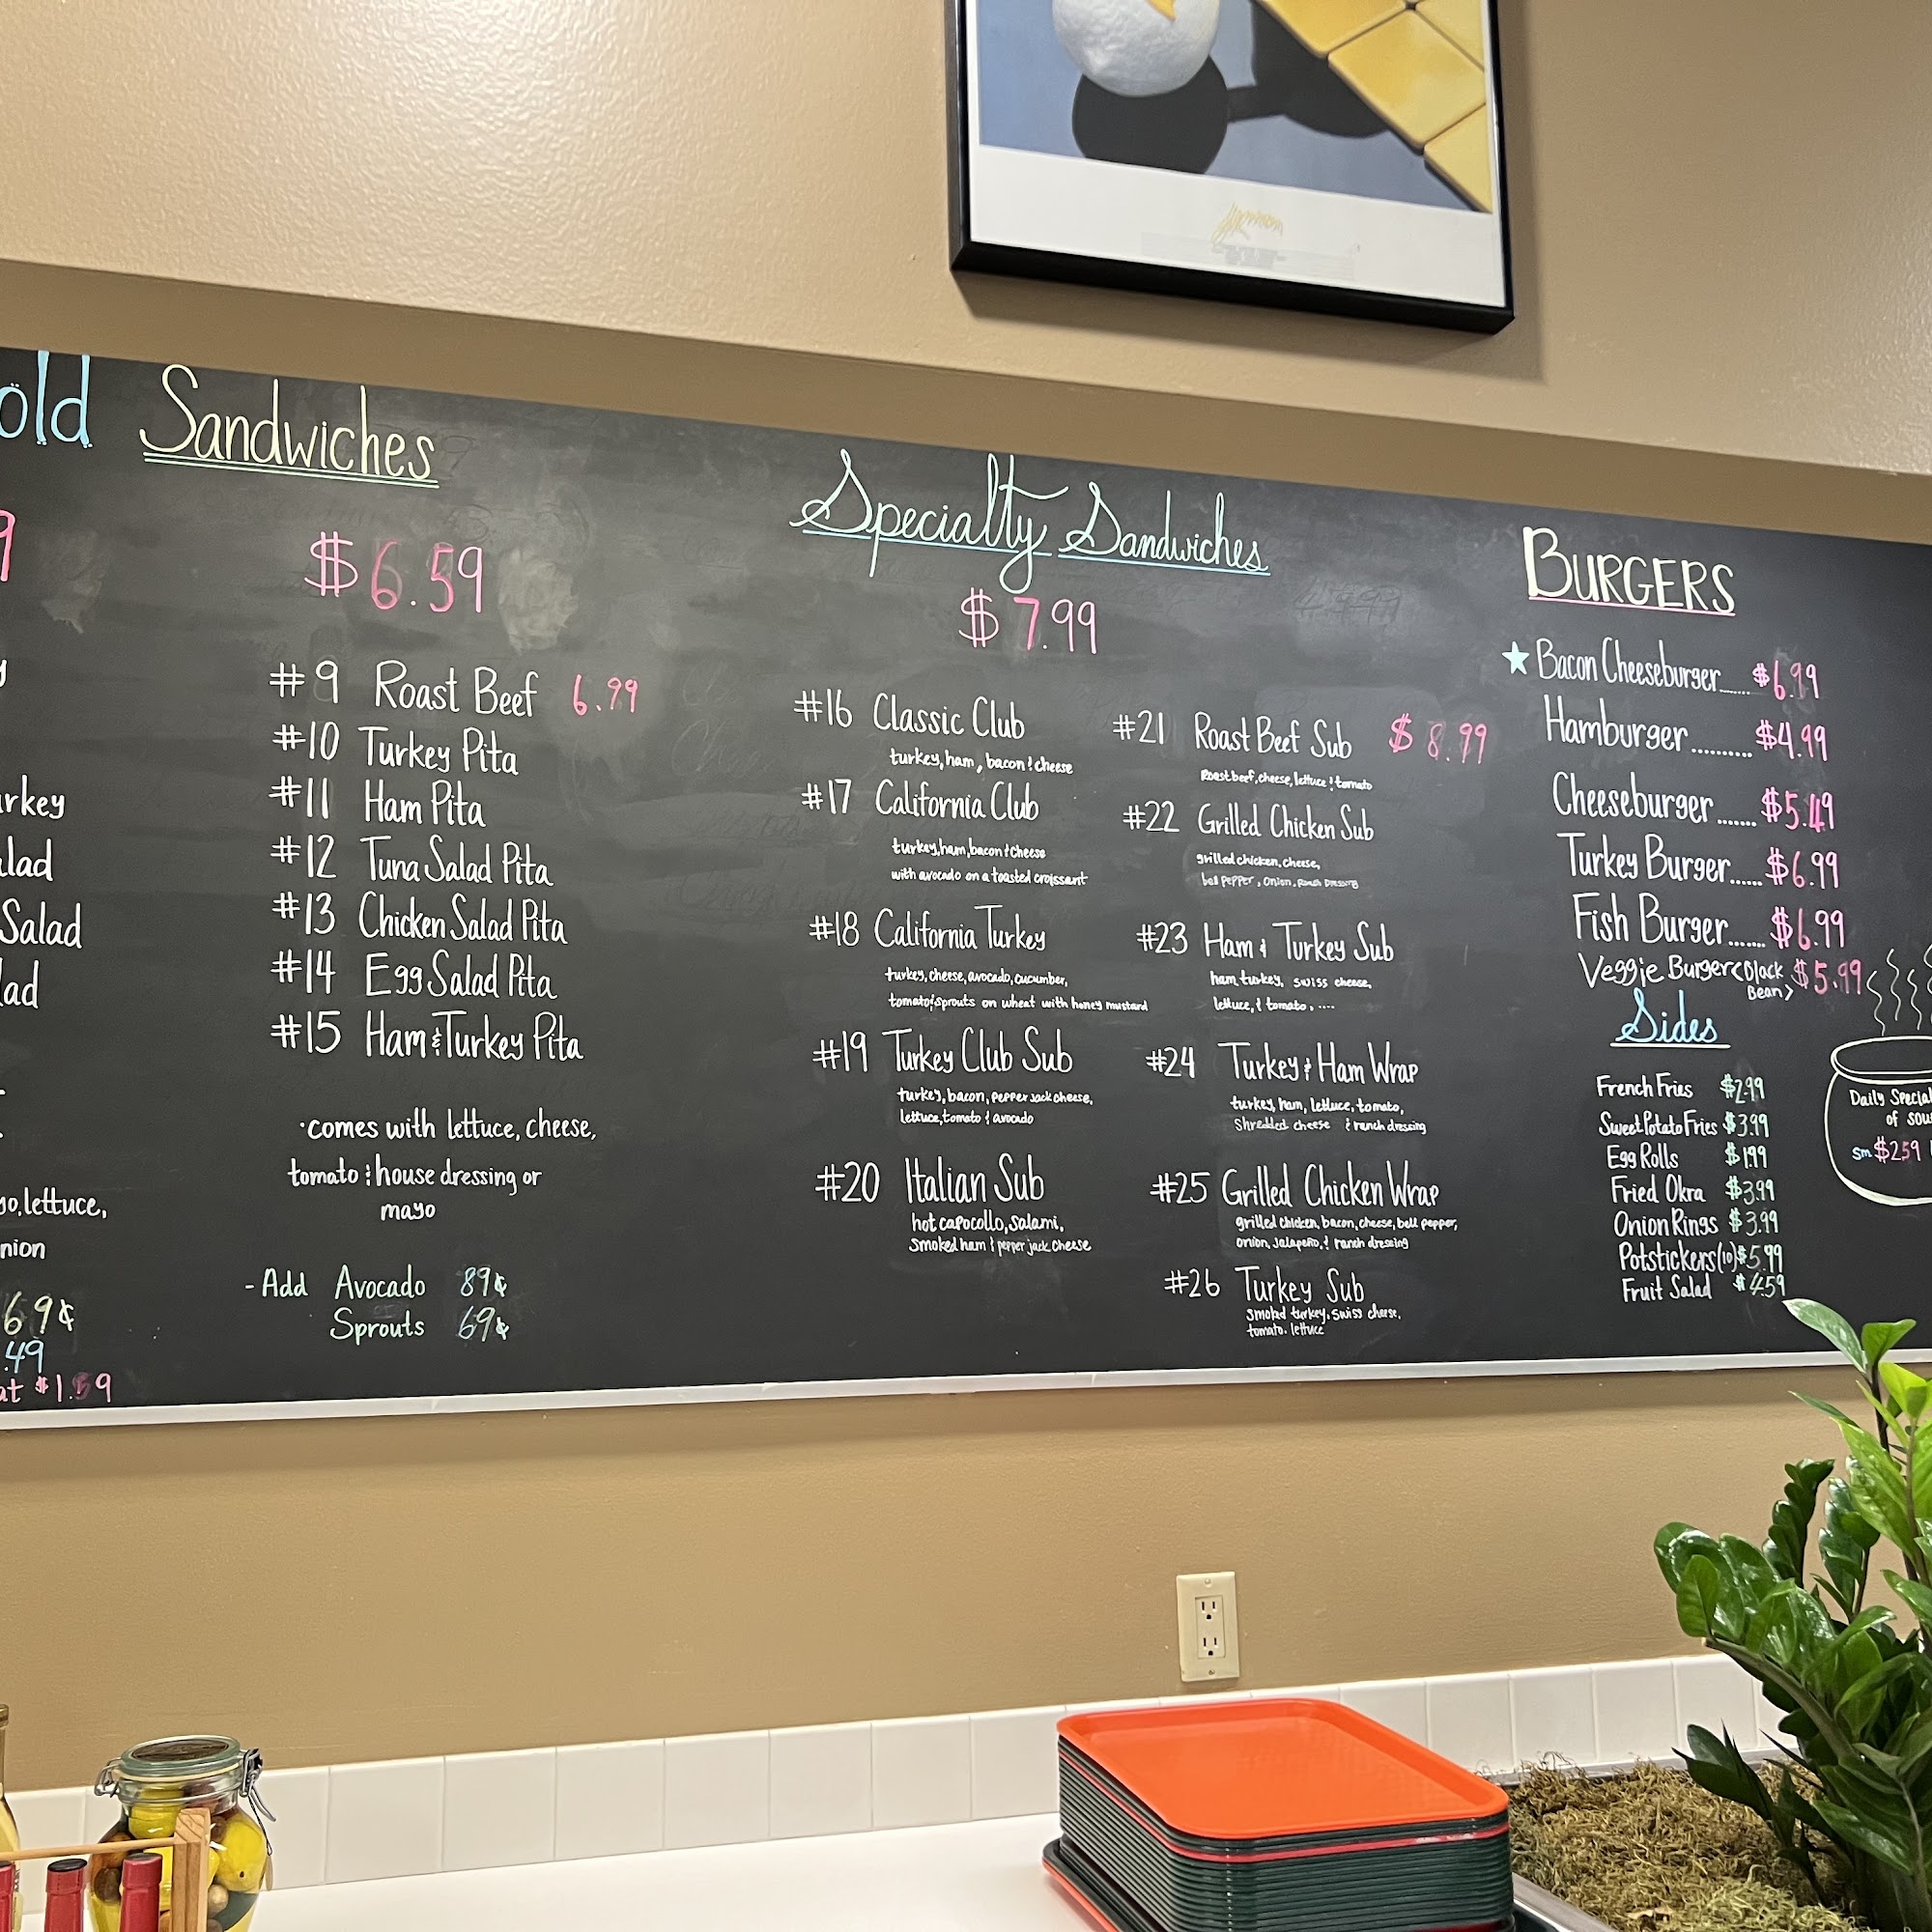 old Sandwiches
9
y
urkey
alad
Salad
lad
yo, lettuce,
nion
69¢
.49
at $1.59
$6.59
#9 Roast Beef 6.99
#10 Turkey Pita
#11 Ham Pita
#12 Tuna Salad Pita
#13 Chicken Salad Pita
#14 Egg Salad Pita
#15 Ham & Turkey Pita
·comes with lettuce, cheese,
tomato & house dressing or
mayo
- Add Avocado 89¢
Sprouts 69¢
Specialty Sandwiches
$7.99
#16 Classic Club
turkey, ham, bacon & cheese
#17 California Club
turkey, ham, bacon & cheese
with avocado on a toasted croissant
#18 California Turkey
turkey, cheese, avocado, cucumber,
tomato & sprouts on wheat with honey mustard
#19 Turkey Club Sub
turkey, bacon, pepper jack cheese,
lettuce, tomato & avocado
#20 Italian Sub
hot capocollo, salami,
smoked ham & pepper jack cheese
#21 Roast Beef Sub $8.99
Roast beef, cheese, lettuce & tomato
#22 Grilled Chicken Sub
grilled chicken, cheese,
bell pepper, onion, ranch dressing
#23 Ham & Turkey Sub
ham, turkey, swiss cheese,
lettuce, & tomato, ....
#24 Turkey & Ham Wrap
turkey, ham, lettuce, tomato,
Shredded cheese & ranch dressing
#25 Grilled Chicken Wrap
grilled chicken, bacon, cheese, bell pepper,
onion, jalapeño, & ranch dressing
#26 Turkey Sub
smoked turkey, swiss cheese,
tomato, lettuce
BURGERS
Bacon Cheeseburger...... $6.99
Hamburger.......... $4.99
Cheeseburger....... $5.49
Turkey Burger...... $6.99
Fish Burger....... $6.99
Veggie Burger <Black Bean> $5.99
Sides
French Fries $2.99
Sweet Potato Fries $3.99
Egg Rolls $1.99
Fried Okra $3.99
Onion Rings $3.99
Potstickers (10) $5.99
Fruit Salad $4.59
Daily Special
of sou
Sm $2.59